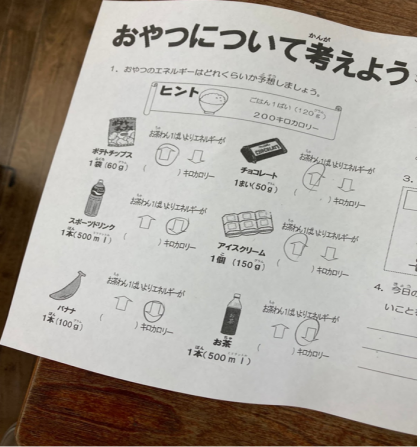 おやつについて考えよう
1. おやつのエネルギーはどれくらいか予想しましょう。
ヒント
ごはん1ぱい(120g)
200キロカロリー
お茶わん1ぱいよりエネルギーが
( )キロカロリー
ポテトチップス
1袋(60g)
お茶わん1ぱいよりエネルギーが
( )キロカロリー
チョコレート
1まい(50g)
お茶わん1ぱいよりエネルギーが
( )キロカロリー
スポーツドリンク
1本(500ml)
お茶わん1ぱいよりエネルギーが
( )キロカロリー
アイスクリーム
1個(150g)
お茶わん1ぱいよりエネルギーが
( )キロカロリー
バナナ
1本(100g)
お茶わん1ぱいよりエネルギーが
( )キロカロリー
お茶
1本(500ml)
3.
4. 今日の
いこと